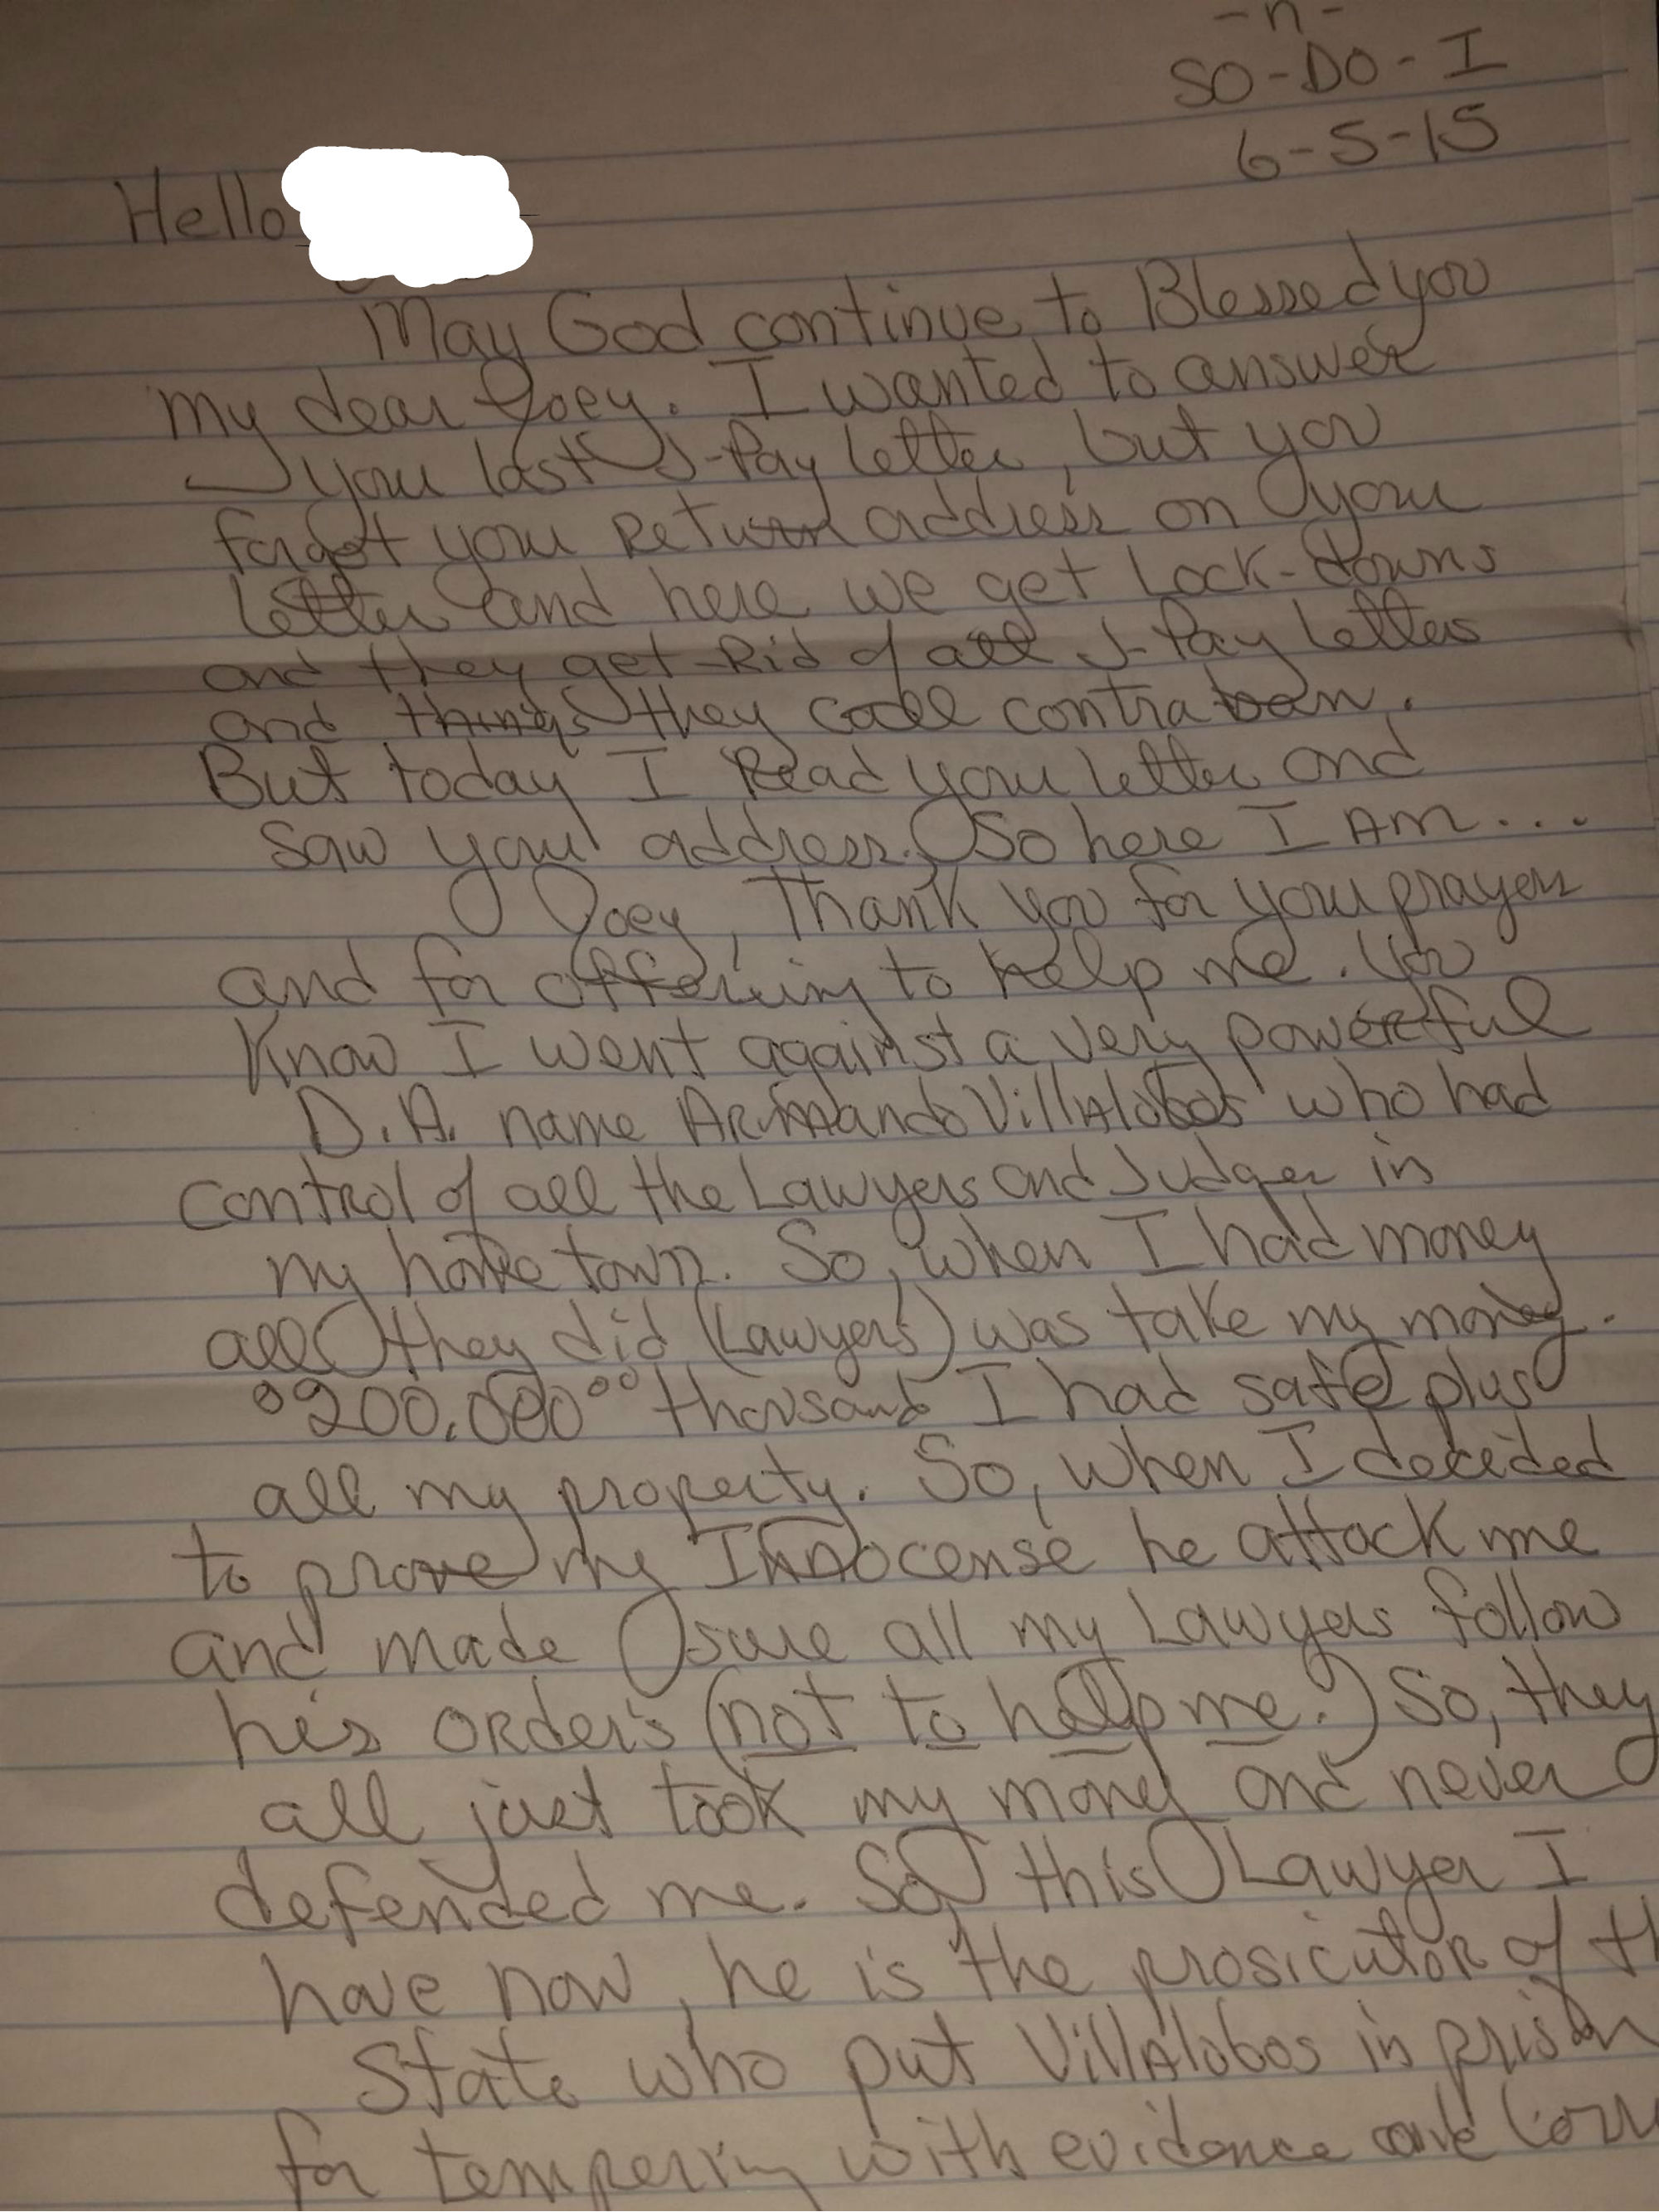 -n-
SO-DO-I
6-5-15
Hello
May God continue to Blessed you
my dear Joey. I wanted to answer
your last J-Pay letter, but you
forgot your Return address on your
letter and here we get Lock-downs
and they get Rid of all J-Pay letters
and things they call contraban.
But today I Read your letter and
saw your address. So here I AM...
Joey, Thank you for your prayers
and for offering to help me. You
Know I went against a very powerful
D.A. name ARMAndo VillAlobos who had
control of all the Lawyers and Judges in
my home town. So, when I had money
all they did (Lawyers) was take my money.
200,000.00 thousand I had safe plus
all my property. So, when I decided
to prove my INNOcense he attack me
and made sure all my Lawyers follow
his orders (not to help me.) So, they
all just took my money and never
defended me. So, this Lawyer I
have now, he is the prosicutor of
State who put VillAlobos in prison
for tempering with evidence